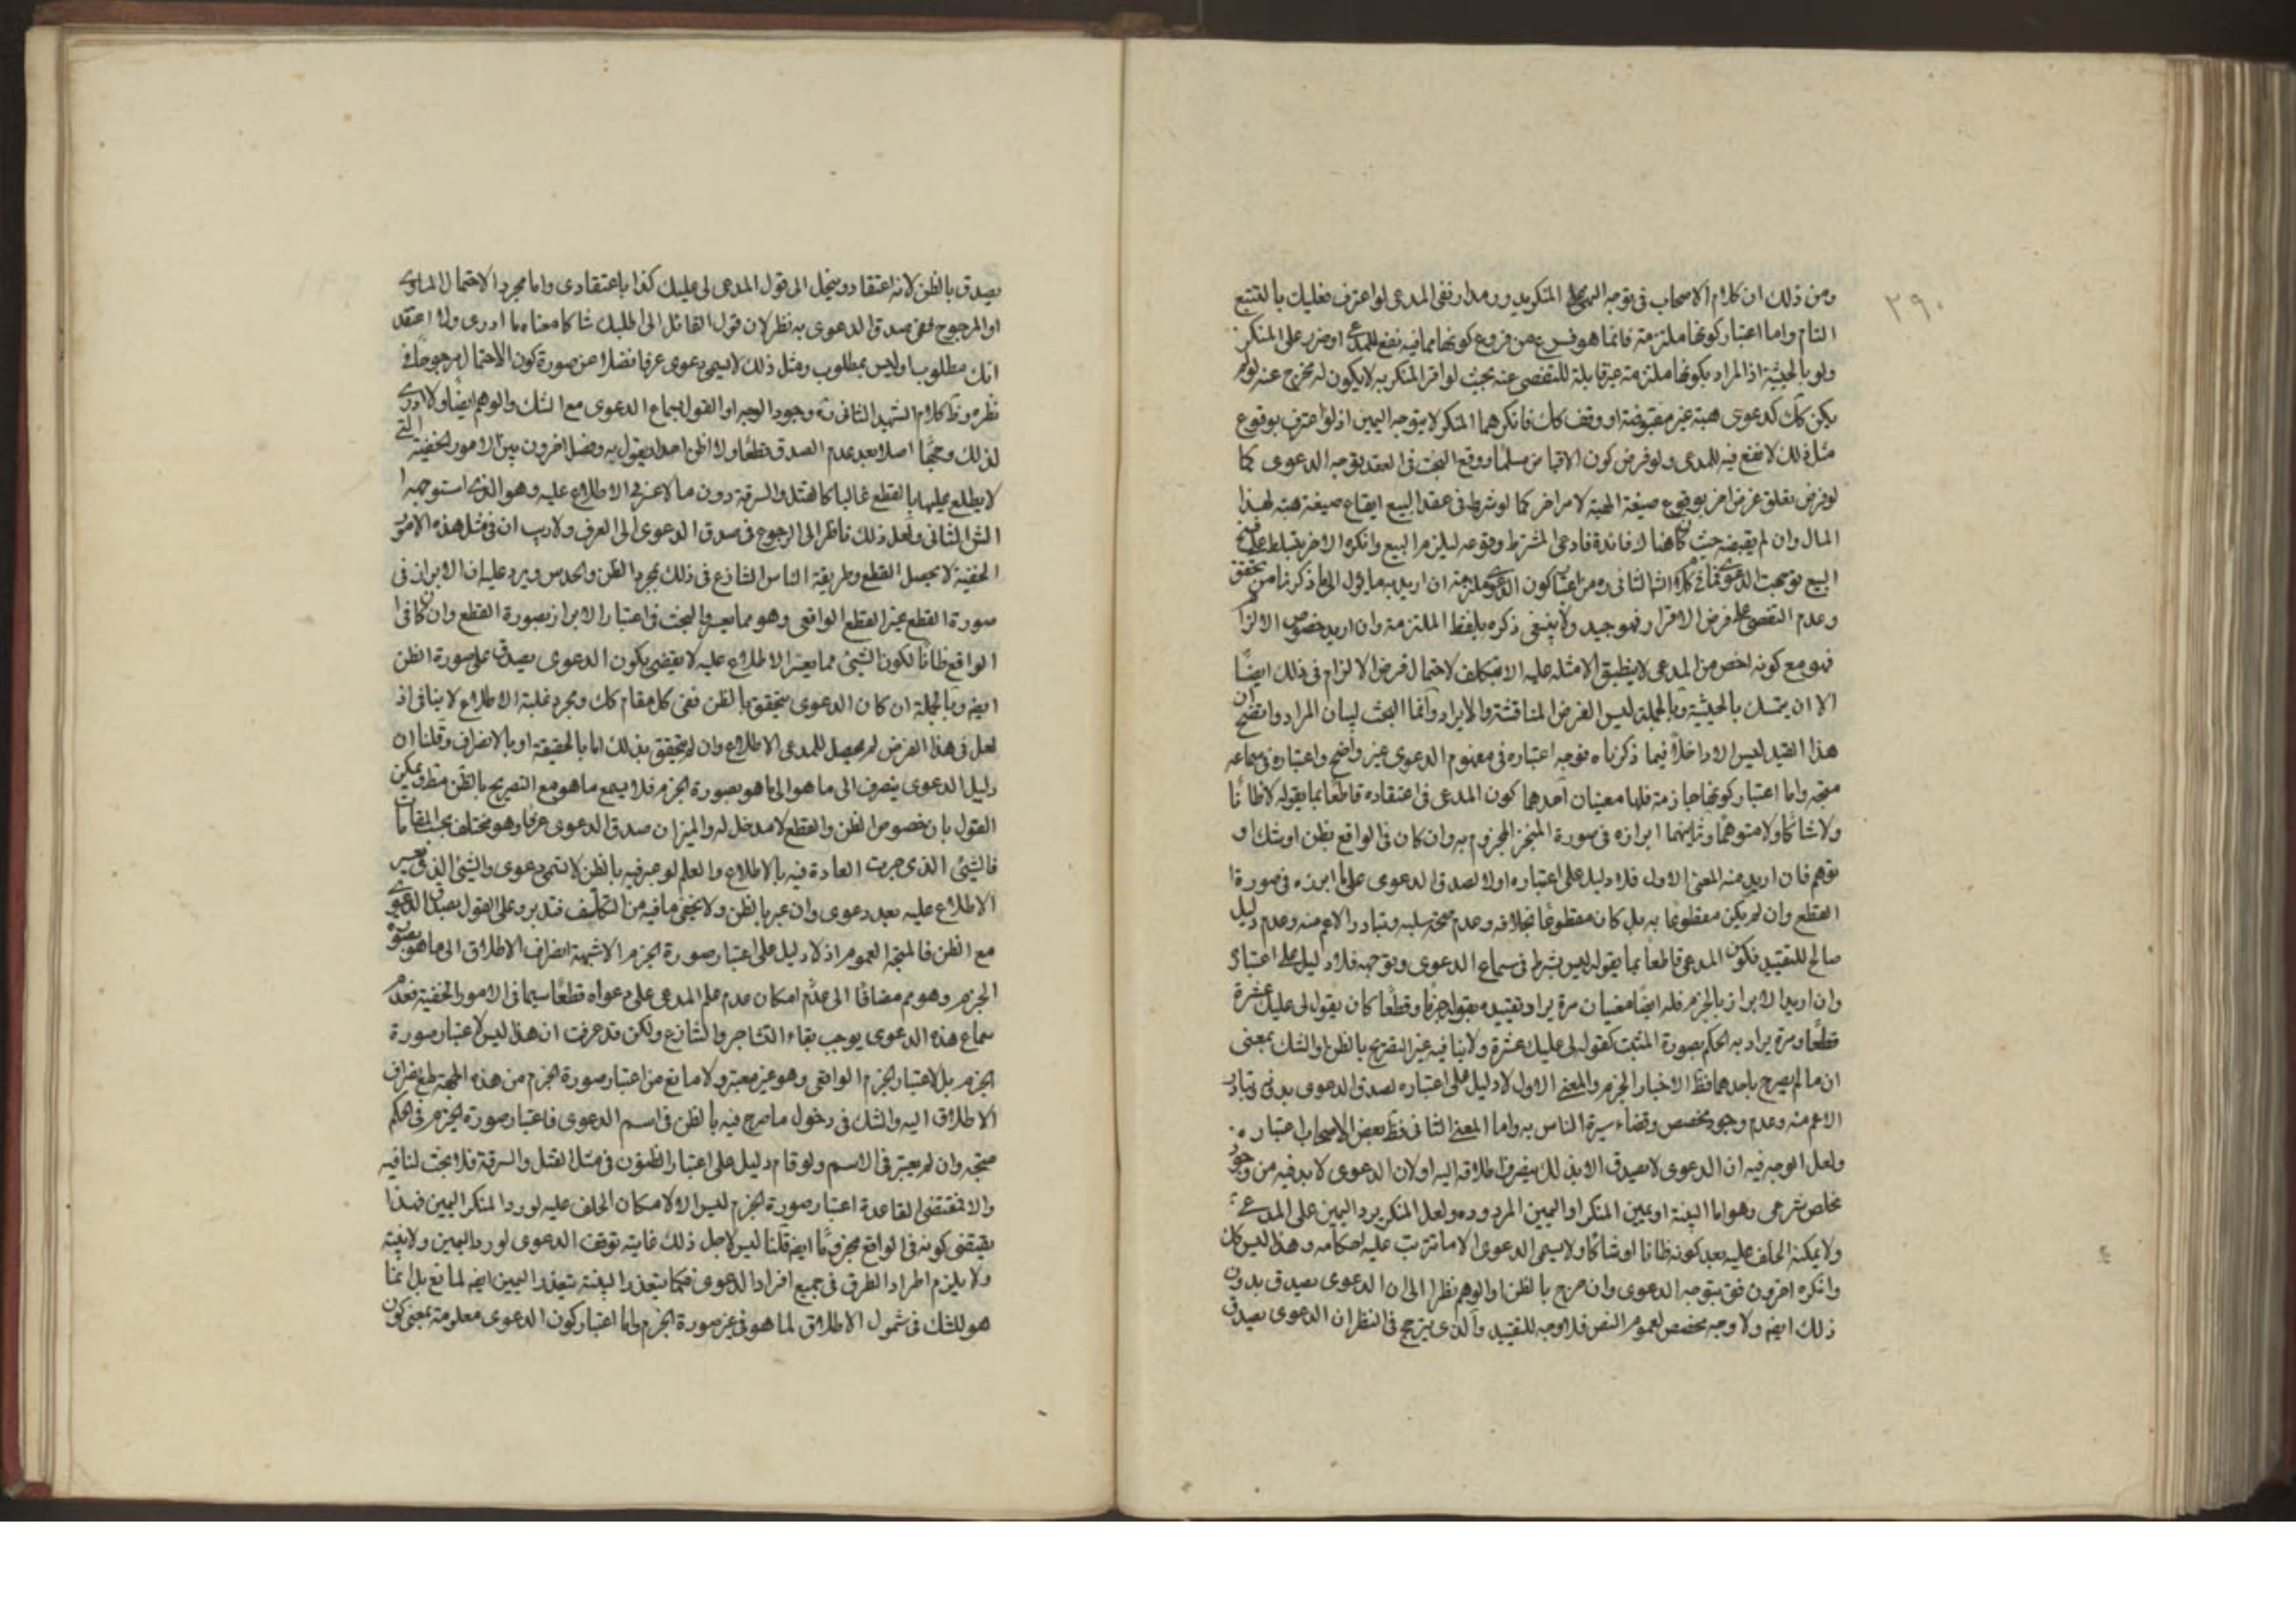 ٢٩٠
ومن ذلك ان كلام الاصحاب فى توجه اليمين على المنكر يدور مدار نفى المدعى لو اعترف فعليك بالتتبع
التام واما اعتبار كونها ملزمة فانما هو فرع من فروع كونها مما فيه نفع للمدعى او ضرر على المنكر
ولو بالحيثية اذ المراد بكونها ملزمة غير قابلة للتفصى عنه بحيث لو اقر المنكر به لا يكون له مخرج عنه ولو لم
يكن كك كدعوى هبة غير مقبوضة او وقف كك فانكرهما المنكر لا يتوجه اليمين اذ لو اعترف بوقوع
مثل ذلك لا نفع فيه للمدعى ولو فرض كون الاقباض مسلما ووقع البحث فى العقد يتوجه الدعوى كما
لو فرض تعلق غرض اخر بوقوع صيغة الهبة لامر اخر كما لو شرط فى عقد البيع ايقاع صيغة هبة لهذا
المال وان لم يقبضه حيث كان هنا لا فائدة فادعى المشترط وقوعه ليلزم البيع وانكره الاخر ليتسلط على فسخ
البيع توجهت الدعوى فما فى كلام الش الثانى ره من اعتبار كون الدعوى ملزمة ان اريد به ما يؤل الى ما ذكرنا من تحقق
وعدم التفصى على فرض الاقرار فهو جيد ولا ينبغى ذكره بلفظ الملتزمة وان اريد خصوص الالزا
فهو مع كونه اخص من المدعى لا ينطبق الامثلة عليه الا بتكلف لاحتمال فرض الالزام فى ذلك ايضًا
الا ان يتمسك بالحيثية وبالجملة ليس الغرض المناقشة والايراد وانما البحث لبيان المراد واتضح ان
هذا القيد ليس الا داخلًا فيما ذكرناه فوجه اعتباره فى مفهوم الدعوى غير واضح واعتباره فى سماعه
متجه واما اعتبار كونها جازمة فلها معنيان احدهما كون المدعى فى اعتقاده قاطعًا بما يقوله لا ظانًا
ولا شاكًا ولا متوهمًا وثانيهما ابرازه فى صورة المنجز المجزوم به وان كان فى الواقع بظن او شك او
توهم فان اريد منه المعنى الاول فلا دليل على اعتباره اولا لصدق الدعوى على ما ابرزه فى صورة
القطع وان لم يكن مقطوعًا به بل كان مقطوعًا بخلافه وعدم صحة سلبه وتبادر الاعم منه وعدم دليل
صالح للتقييد فكون المدعى قاطعًا بما يقوله ليس بشرط فى سماع الدعوى وتوجهه فلا دليل على اعتبار
وان اريد الابراز بالجزم فله ايضًا معنيان مرة يراد تقييده بقوله جزمًا وقطعًا كان يقول لى عليك عشرة
قطعًا ومرة يراد به الحكم بصورة المثبت كقوله لى عليك عشرة ولا ينافيه غير التصريح بالظن او الشك بمعنى
ان ما لم يصرح باحدهما فظ الاخبار الجزم والمعنى الاول لا دليل على اعتباره لصدق الدعوى بدونه وتبادر
الاعم منه وعدم وجود مخصص وقضاء سيرة الناس به واما المعنى الثانى فظ بعض الاصحاب اعتباره
ولعل الوجه فيه ان الدعوى لا يصدق الا بذلك فيصرف اطلاقه اليه او لان الدعوى لا بد فيه من وجود
مخلص شرعى وهو اما البينة او يمين المنكر او اليمين المردودة ولعل المنكر يرد اليمين على المدعى
ولا يمكنه الحلف عليه بعد كونه ظانا او شاكًا ولا يسمى الدعوى الا ما ترتب عليه احكامه وهذا ليس كك
وانكره اخرون فق بتوجه الدعوى وان صرح بالظن او الوهم نظرا الى ان الدعوى يصدق بدون
ذلك ايضا ولا وجه مخصص لعموم النص فلا وجه للتقييد والذى يترجح فى النظر ان الدعوى يصدق
يصدق بالظن لانه اعتقاد وينحل الى قول المدعى لى عليك كذا باعتقادى واما مجرد الاحتمال المساوى
او المرجوح ففى صدق الدعوى به نظر لان قول القائل انى اطلبك شاكا معناه ما ادرى ولا اعتقد
انك مطلوب او ليس بمطلوب ومثل ذلك لا يسمى دعوى عرفا فضلا عن صورة كون الاحتمال مرجوحًا فى
نظره وظ كلام الشهيد الثانى ره وجود الوجه او القول بسماع الدعوى مع الشك والوهم ايضًا ولا ادرى
لذلك وجهًا اصلا بعد عدم الصدق قطعًا ولا اظن احدا يقول به وفصل اخرون بين الامور الخفية التى
لا يطلع عليها بالقطع غالبا كالقتل والسرقة دون ما لا عز فى الاطلاع عليه وهو الذى استوجهه
الش الثانى ولعل ذلك ناظر الى الرجوع فى صدق الدعوى الى العرف ولا ريب ان فى مثل هذه الامور
الخفية لا يحصل القطع وطريقة الناس التنازع فى ذلك بمجرد الظن والحدس ويرد عليه ان الابراز فى
صورة القطع غير القطع الواقعى وهو مما يعسر والبحث فى اعتبار الابراز بصورة القطع وان كان فى
الواقع ظانًا لكون الشيئ مما يعسر الاطلاع عليه لا يقتضى بكون الدعوى يصدق على صورة الظن
ايضا وبالجملة ان كان الدعوى يتحقق بالظن ففى كل مقام كك ومجرد غلبة الاطلاع لا ينافى اذ
لعل فى هذا الفرض لم يحصل للمدعى الاطلاع وان لم يتحقق بذلك اما بالحقيقة او بالانصراف وقلنا ان
دليل الدعوى ينصرف الى ما هو الى ما هو بصورة الجزم فلا يسمع ما هو مع التصريح بالظن مط ويمكن
القول بان خصوص الظن والقطع لا مدخل له والميزان صدق الدعوى عرفا وهو مختلف بحسب المقامات
فالشيئ الذى جرت العادة فيه بالاطلاع والعلم لو عبر فيه بالظن لا تسمى دعوى والشيئ الذى يعسر
الاطلاع عليه يعد دعوى وان عبر بالظن ولا يخفى ما فيه من التكلف فتدبر وعلى القول بصدق الدعوى
مع الظن فالمتجه العموم اذ لا دليل على اعتبار صورة الجزم الا شبهة انصراف الاطلاق الى ما هو بصورة
الجزم وهو مم مضافًا الى عدم امكان عدم علم المدعى على دعواه قطعًا سيما فى الامور الخفية فعدم
سماع هذه الدعوى يوجب بقاء التشاجر والتنازع ولكن قد عرفت ان هذا ليس لاعتبار صورة
الجزم بل لاعتبار الجزم الواقعى وهو غير معتبر ولا مانع من اعتبار صورة الجزم من هذه الجهة مع انصراف
الاطلاق اليه والشك فى دخول ما صرح فيه بالظن فى اسم الدعوى فاعتبار صورة الجزم فى الحكم
متجه وان لم يعتبر فى الاسم ولو قام دليل على اعتبار الظنون فى مثل القتل والسرقة فلا بحث لنا فيه
والا فمقتضى القاعدة اعتبار صورة الجزم ليس الا لامكان الحلف عليه لو رد المنكر اليمين فهذا
يقتضى كونه فى الواقع مجزومًا ايضا قلنا ليس لاجل ذلك غايته توقف الدعوى لو رد اليمين ولا بينة
ولا يلزم اطراد الطرق فى جميع افراد الدعوى فكما يتعذر البينة يتعذر اليمين ايضا لمانع بل انما
هو للشك فى شمول الاطلاق لما هو فى غير صورة الجزم واما اعتبار كون الدعوى معلومة بمعنى كون